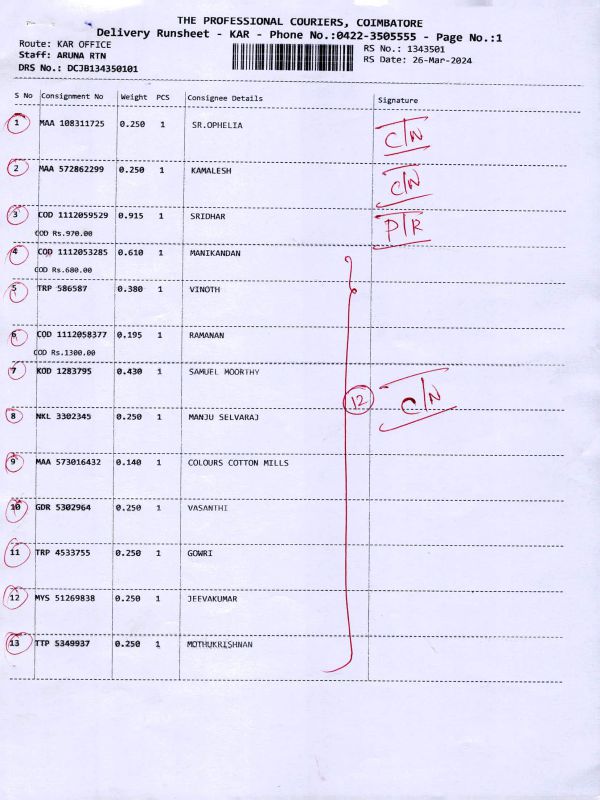 THE PROFESSIONAL COURIERS, COIMBATORE
Delivery Runsheet - KAR - Phone No.:0422-3505555 - Page No.:1
Route: KAR OFFICE RS No.: 1343501
Staff: ARUNA RTN RS Date: 26-Mar-2024
DRS No.: DCJB134350101
S No Consignment No Weight PCS Consignee Details Signature
1 MAA 108311725 0.250 1 SR.OPHELIA C/N
2 MAA 572862299 0.250 1 KAMALESH C/N
3 COD 1112059529 0.915 1 SRIDHAR P/R
COD Rs.970.00
4 COD 1112053285 0.610 1 MANIKANDAN
COD Rs.680.00
5 TRP 586587 0.380 1 VINOTH
6 COD 1112058377 0.195 1 RAMANAN
COD Rs.1300.00
7 KOD 1283795 0.430 1 SAMUEL MOORTHY
12 C/N
8 NKL 3302345 0.250 1 MANJU SELVARAJ
9 MAA 573016432 0.140 1 COLOURS COTTON MILLS
10 GDR 5302964 0.250 1 VASANTHI
11 TRP 4533755 0.250 1 GOWRI
12 MYS 51269838 0.250 1 JEEVAKUMAR
13 TTP 5349937 0.250 1 MOTHUKRISHNAN